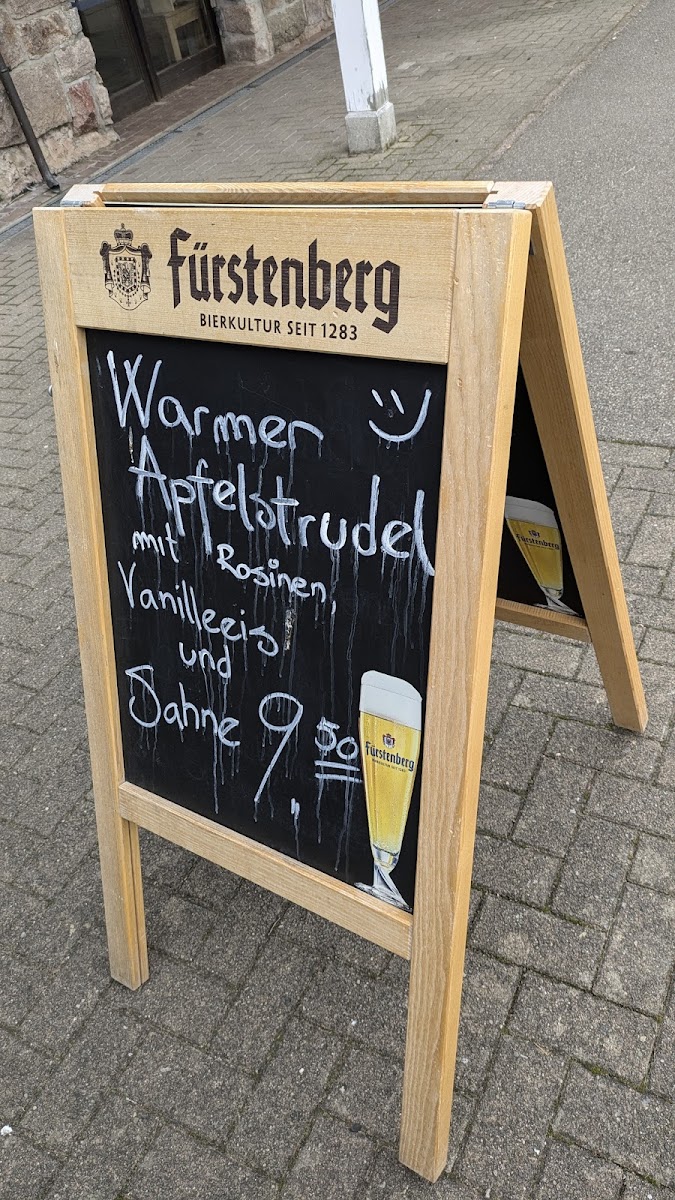 Fürstenberg
BIERKULTUR SEIT 1283
Warmer
Apfelstrudel
mit Rosinen,
Vanilleeis
und
Sahne 9,50
Fürstenberg
BIERKULTUR SEIT 1283
Fürstenberg